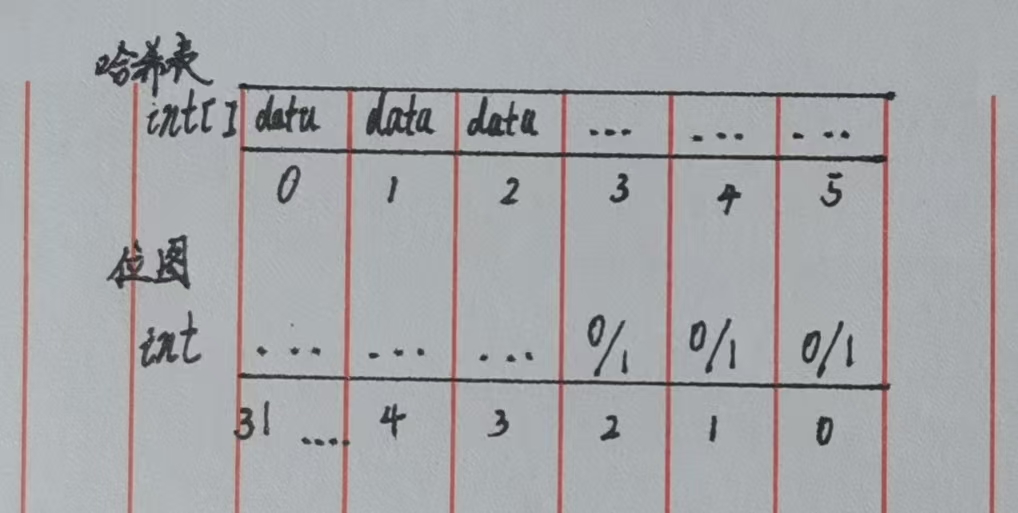 哈希表
int[] data data data ... ... ...
0 1 2 3 4 5
位图
int ... ... ... 0/1 0/1 0/1
31 .... 4 3 2 1 0